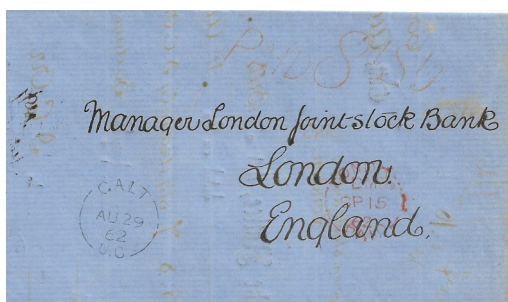 Manager London Joint Stock Bank
London.
England.
GALT
AU 29
62
U.C.
SP 15